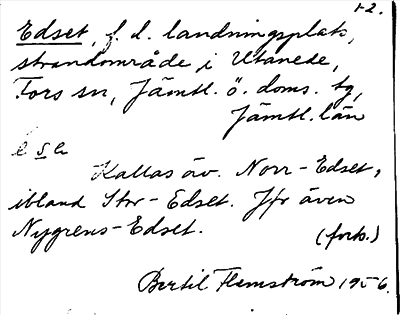 1-2.
Edset, f. d. landningsplats,
strandområde i Utanede,
Fors sn, Jämtl. ö. doms. tg,
Jämtl. län
Kallas äv. Norr-Edset,
ibland Stor-Edset. Jfr även
Nygrens-Edset. (forts.)
Bertil Flemström 1956.